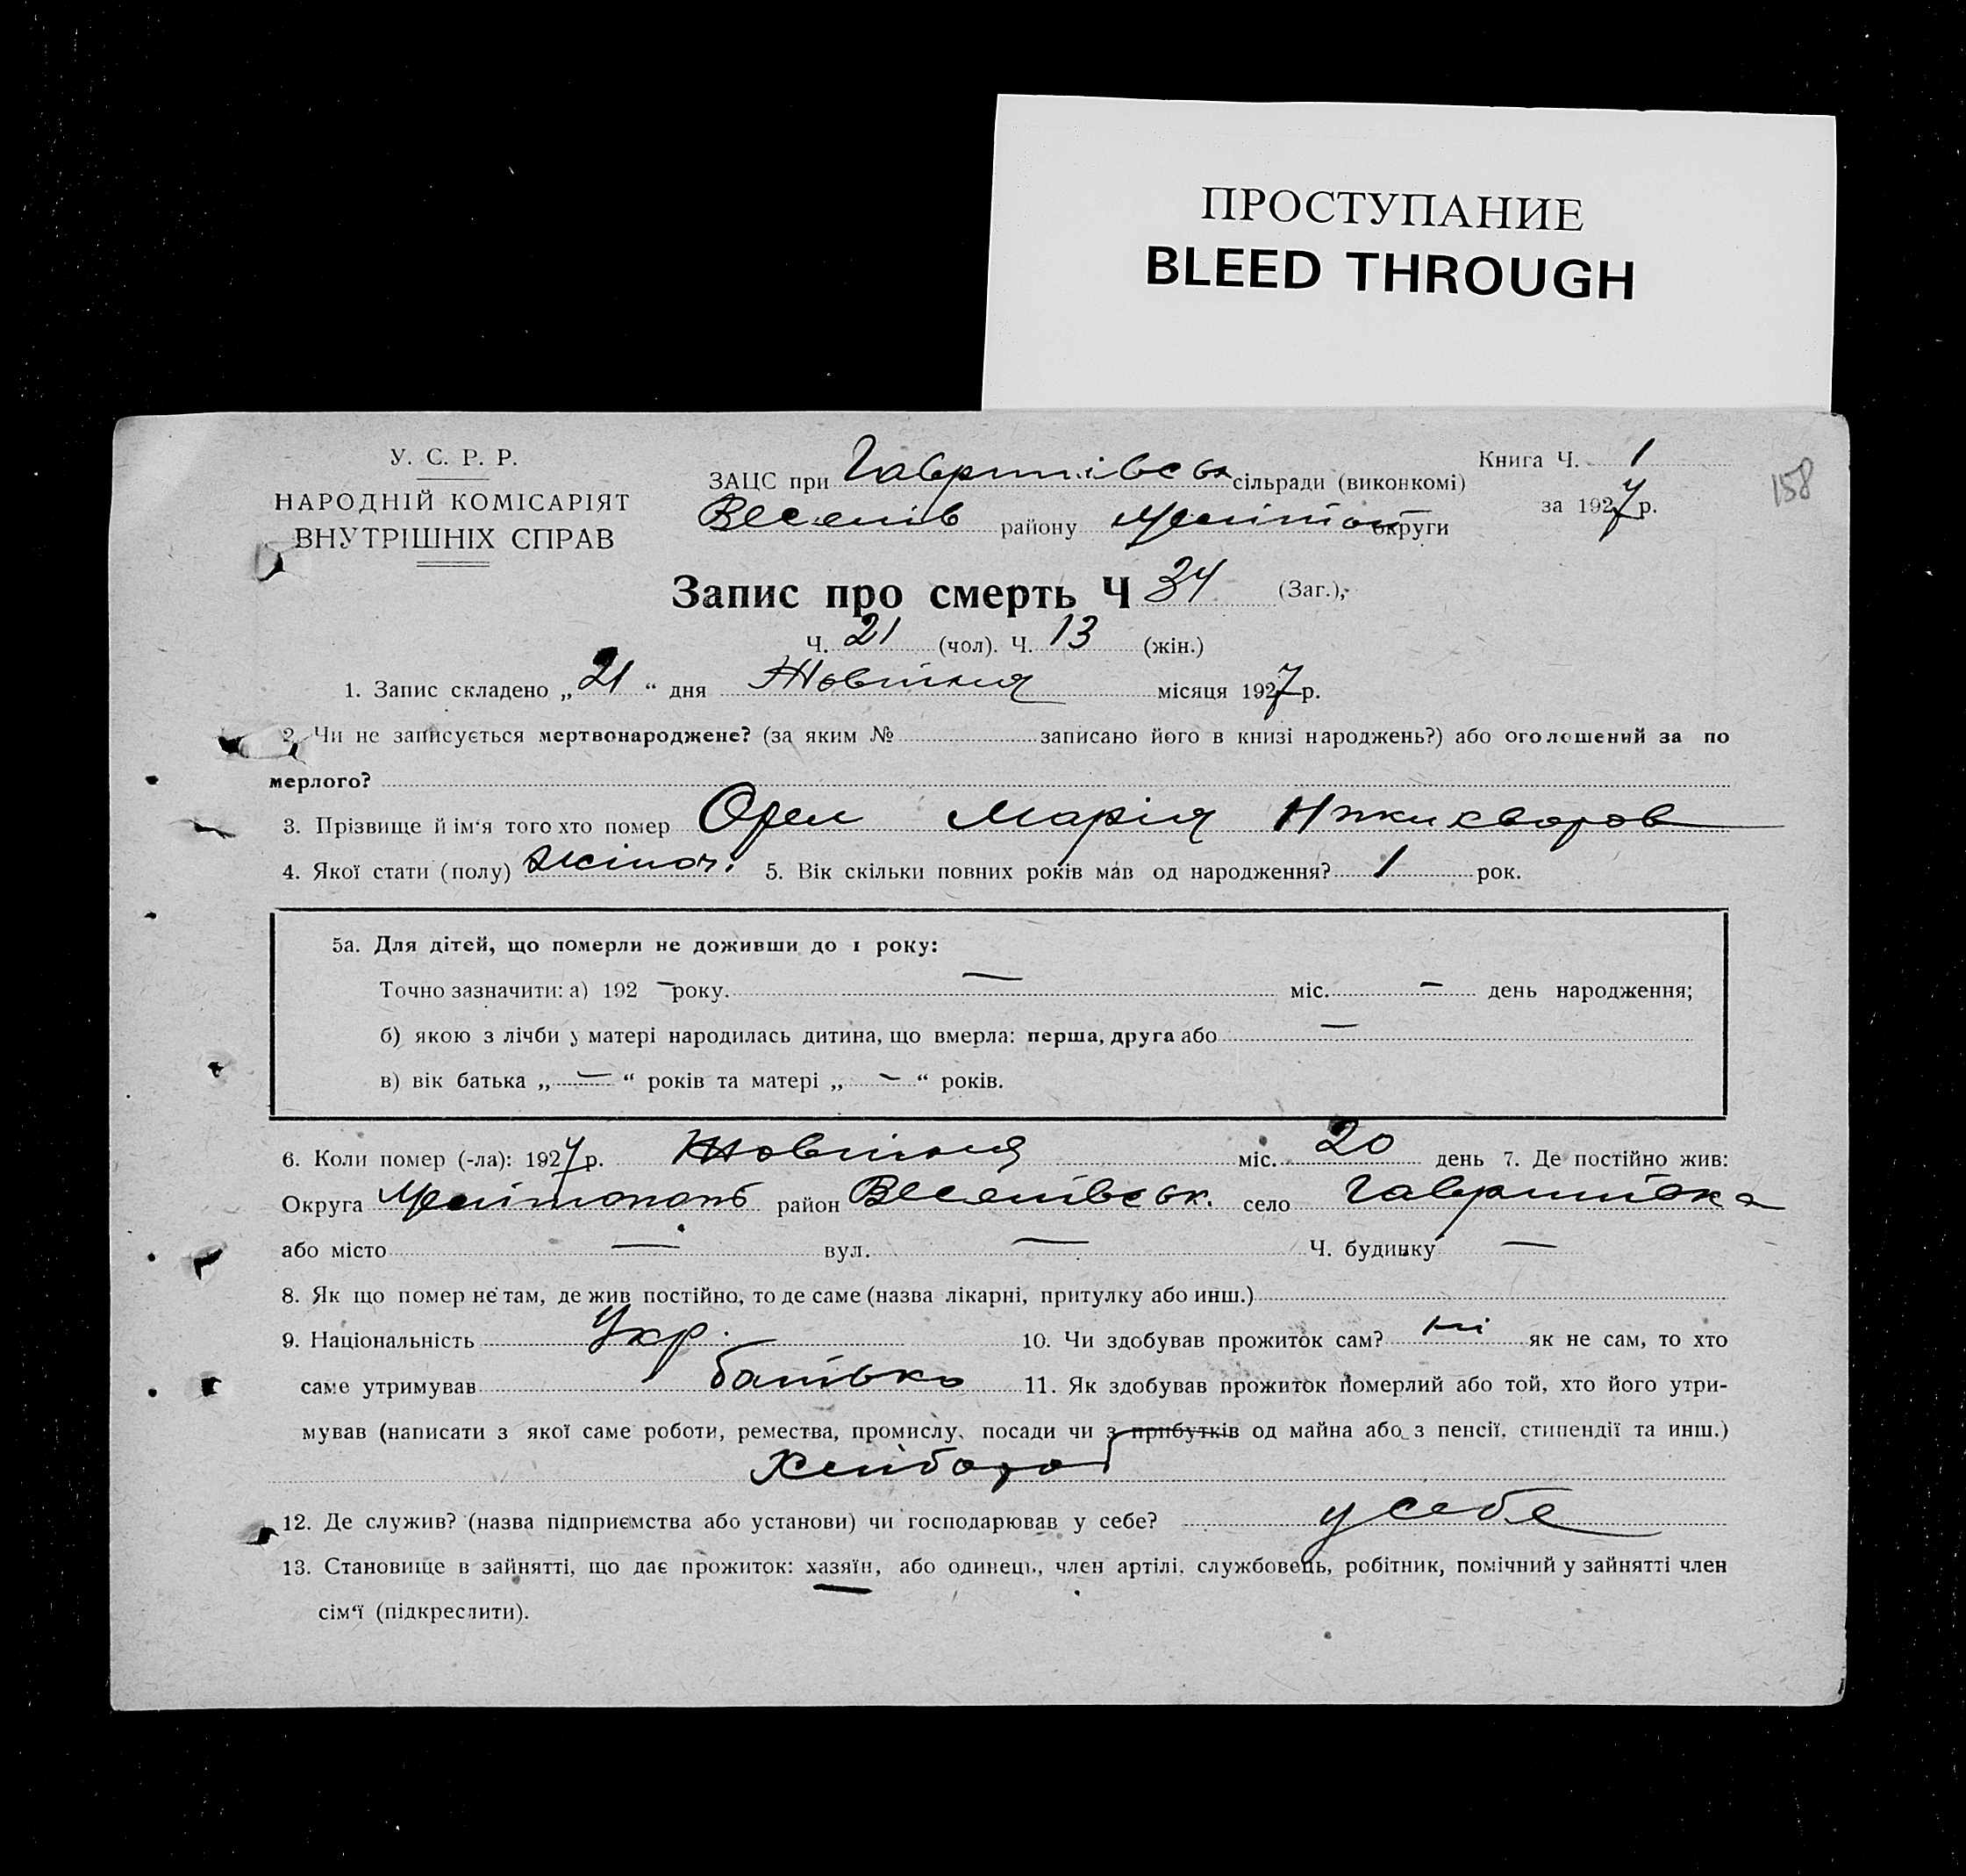 ПРОСТУПАНИЕ
BLEED THROUGH
У. С. Р. Р.
НАРОДНІЙ КОМІСАРІЯТ
ВНУТРІШНІХ СПРАВ
ЗАЦС при сільради (виконкомі)
Веселів району Мелітоп округи
Книга Ч. 1
за 1927 р.
158
Запис про смерть Ч 34 (Заг.),
Ч. 21 (чол). Ч. 13 (жін.)
1. Запис складено „ 21 “ дня Жовтня місяця 1927 р.
2. Чи не записується мертвонароджене? (за яким № записано його в книзі народжень?) або оголошений за по
мерлого?
3. Прізвище й ім‘я того хто помер Орел Марія
4. Якої стати (полу) жіноч. 5. Вік скільки повних років мав од народження? 1 рок.
5а. Для дітей, що померли не доживши до 1 року:
Точно зазначити: а) 192 – року. — міс. – день народження;
б) якою з лічби у матері народилась дитина, що вмерла: перша, друга або —
в) вік батька „ — “ років та матері „ – “ років.
6. Коли помер (-ла): 1927 р. Жовтня міс. 20 день 7. Де постійно жив:
Округа район Веселівськ. село Гаврилівка
або місто — вул. — Ч. будинку —
8. Як що помер не там, де жив постійно, то де саме (назва лікарні, притулку або инш.)
9. Національність Укр. 10. Чи здобував прожиток сам? ні як не сам, то хто
саме утримував батько 11. Як здобував прожиток померлий або той, хто його утри-
мував (написати з якої саме роботи, ремества, промислу, посади чи з прибутків од майна або з пенсії, стипендії та инш.)
Хлібороб
12. Де служив? (назва підприємства або установи) чи господарював у себе? у себе
13. Становище в зайнятті, що дає прожиток: хазяїн, або одинець, член артілі, службовець, робітник, помічний у зайнятті член
сім‘ї (підкреслити).